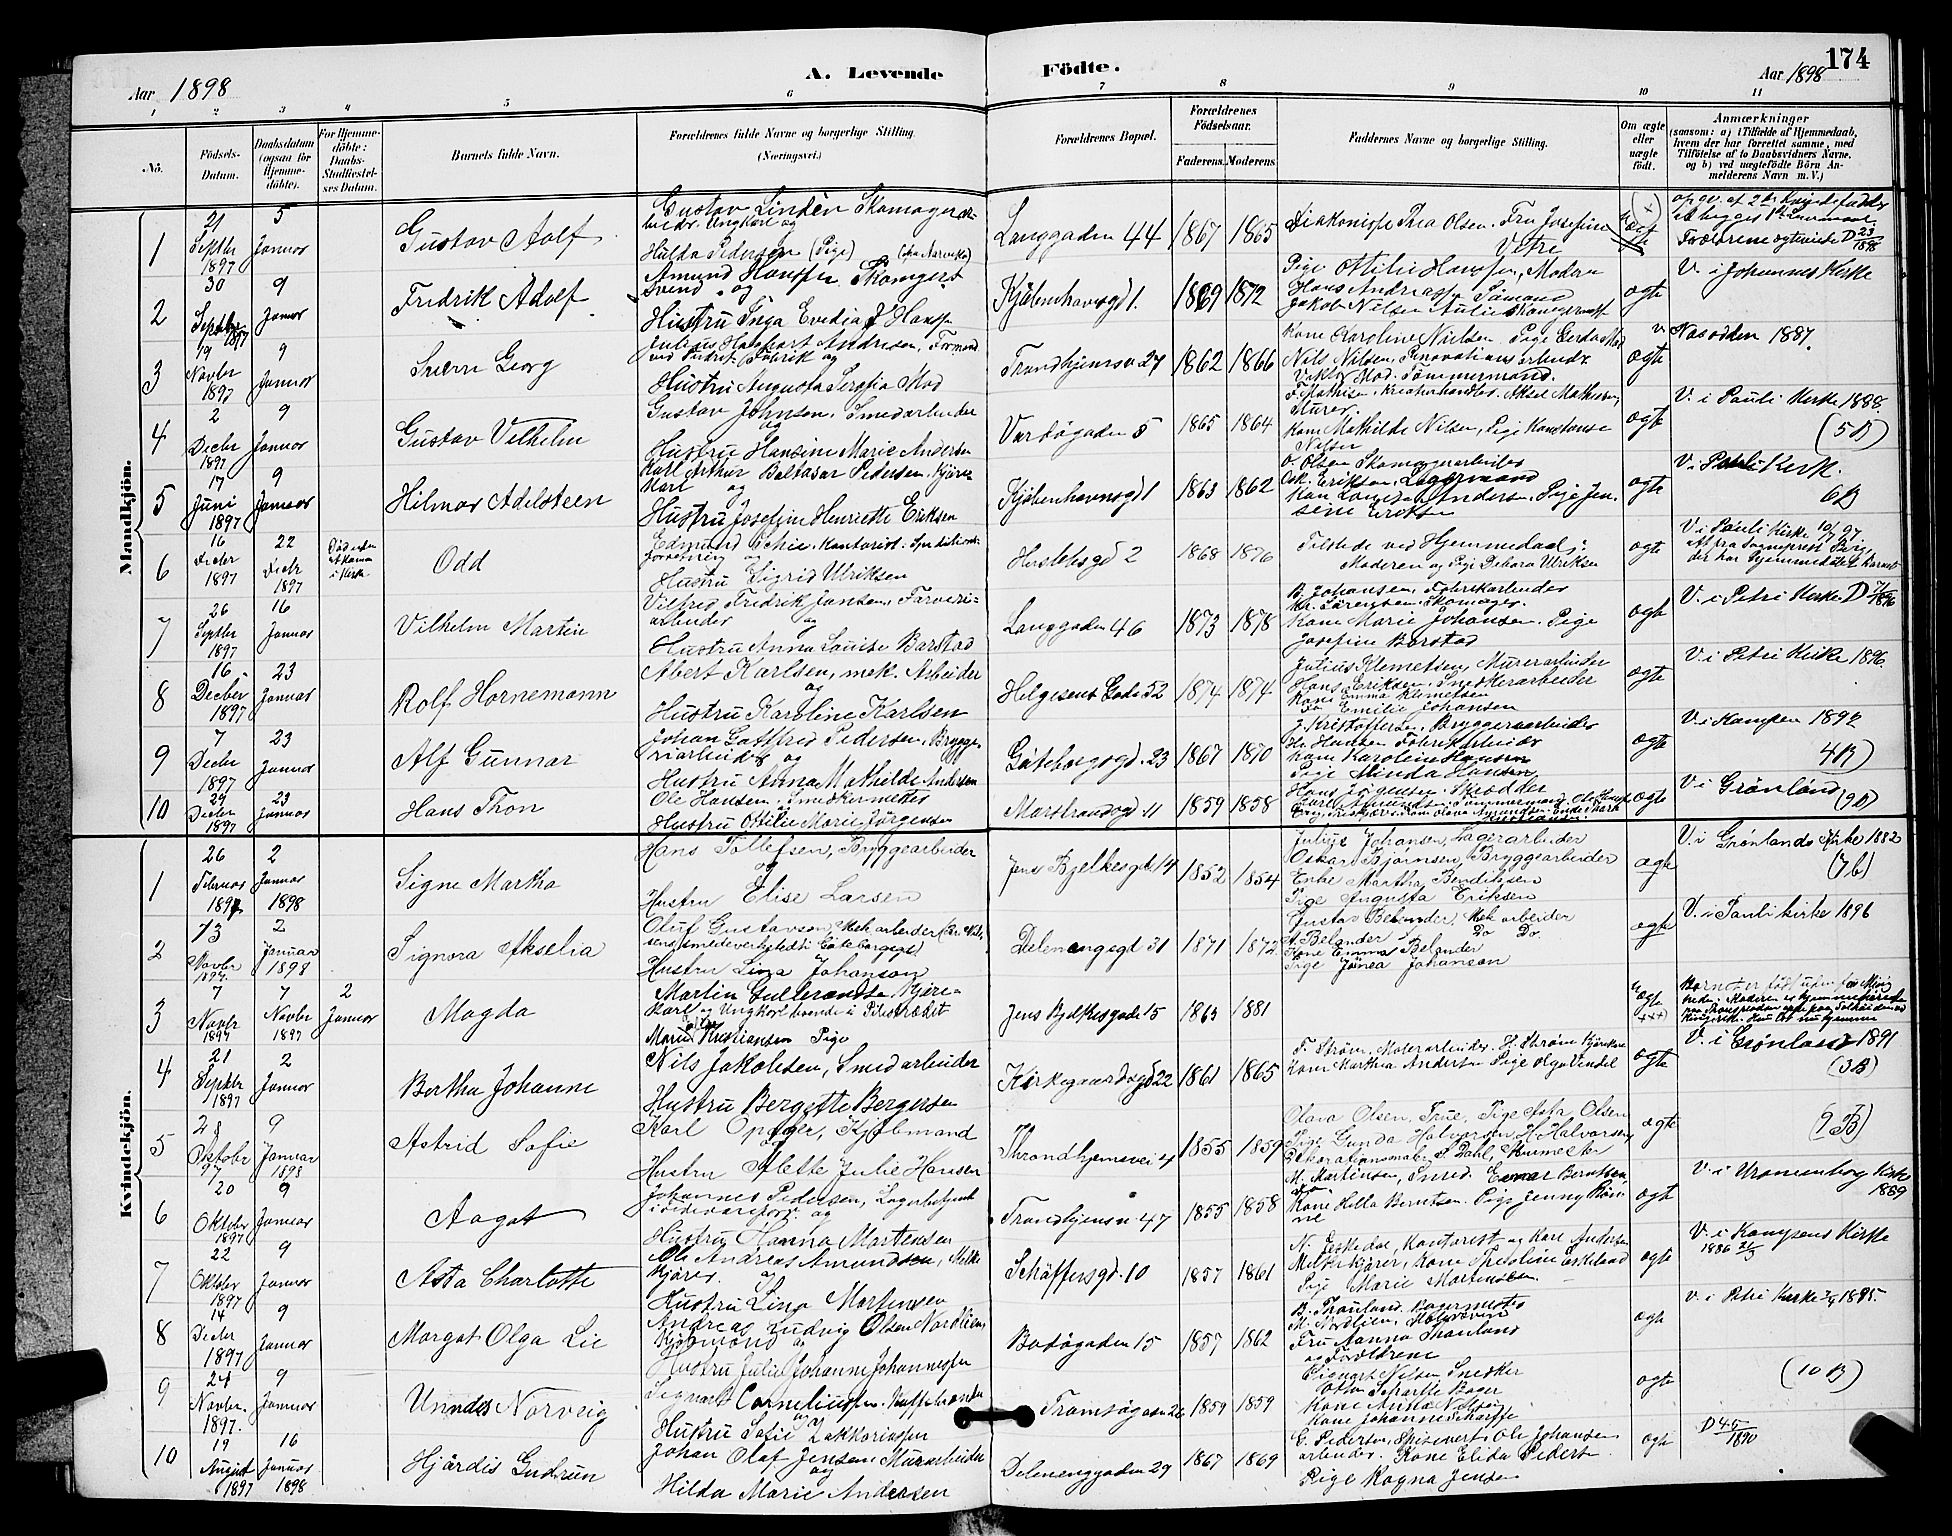 Aar 1898
A. Levende
Födte.
Aar 1898
174
1 2 3 4 5 6 7 8 9 10 11
No.
Födsels-Datum.
Daabsdatum (ogsaa for Hjemme-döbte).
For Hjemme-döbte: Daabs-Stadfæstel-ses Datum.
Barnets fulde Navn.
Forældrenes fulde Navne og borgerlige Stilling.
(Næringsvei.)
Forældrenes Bopæl.
Forældrenes Födselsaar.
Faderens. Moderens
Faddernes Navne og borgerlige Stilling.
Om ægte eller uægte födt.
Anmærkninger
(saasom: a) i Tilfælde af Hjemmedaab, hvem der har forrettet samme, med Tilföielse af to Daabsvidners Navne, og b) ved uægtefödte Börn An-melderens Navn m. V.)
Mandkjön.
1
21 Septbr 1897
5 Januar
Gustav Aolf
Gustav Lindén Skomagerar-
beider. Ungkarl og
Hilda Pedersen (Pige)
Langgaden 44
1867 1865
Diakonisse Thea Olsen. Fru Josefine
Vetre
2
30 Septbr 1897
9 Januar
Fredrik Adolf
Amund Hanssen Skomager
svend og
Hustru Inga Evedia J Hanss
Kjøbenhavnsgd 1.
1869 1872
Pige Ottilie Hanssen, Modern
Hans Andreass Sømand
ogte
V. i Johannes Kirke
3
19 Novbr 1897
9 Januar
Sverre Georg
Andresen, Formand
ved Fabrik og
Hustru Augusta Serafia Mod
Trondhjemsv 27
1862 1866
Kone Karoline Nielsen Pige Gerda Mod
Nils Nilsen, Renovationsarbeider
Mod. Tömmermand.
ogte
Nesodden 1887.
4
2 Decbr 1897
9 Januar
Gustav Vilhelm
Gustav Johnsen. Smedarbeider
og
Hustru Hansine Marie Andersen
Vardøgaden 5
1865 1864
F. Mathisen, Kreaturhandler. Aksel Mathisen,
Murer
Kone Mathilde Nilsen, Pige Konstanse
Nilsen
ogte
V. i Pauli Kirke 1888.
(5 B)
5
17 Juni 1897
9 Januar
Hilmar Adelsteen
Karl Arthur Baltasar Pedersen. Kjøre-
karl og
Hustru Josefine Henriette Eriksen
Kjøbenhavnsgd 1
1863 1862
O. Olsen Skomagerarbeider
Osk. Eriksen, Lagermand
Andersen. Pige Jen-
sine Eriksen
ogte
V. i Pauli Kirk.
6 B
6
16 Decbr 1897
22 Decbr 1897
Odd
Edmund Schie, Kontorist i Speditions-
forretning og
Hustru Sigrid Ulriksen
Herslebsgd 2
1868 1876
Tilstede ved Hjemmedaab:
Moderen og Pige Debora Ulriksen
ogte
V i Pauli Kirke 10/7 97
7
26 Septbr 1897
16 Januar
Vilhelm Martin
Vilfred Fredrik Jansen. Farveri-
arbeider og
Hustru Anna Louise Barstad
Langgaden 46
1873 1878
B. Johansen, Fabrikarbeider
Kr. Sörensen. Skomager.
Kone Marie Johansen. Pige
Josefine Barstad
ogte
V. i Petri Kirke
8
16 Decber 1897
23 Januar
Rolf Hornemann
Abert Karlsen, mek. Arbeider
og
Hustru Karoline Karlsen
Helgesens Gade 52
1874 1874
Julius Klemetsen, Murerarbeider
Hans Eriksen, Snedkerarbeider
Kone Emma Klemetsen
Emilie Johansen
ogte
V. i Petri Kirke 1896
9
7 Decbr 1897
23 Januar
Alf Gunnar
Johan Gottfred Pedersen, Brygge-
riarbeider og
Hustru Anna Mathilde Andersen
Göteborggd. 23
1867 1870
J. Kristoffersen, Bryggeriarbeider
H. Hansen Fabrikarbeider
Kone Karoline Hansen
Pige Minda Hansen
ogte
V. i Kampen 1892
4 B)
10
29 Decbr 1897
23 Januar
Hans Thon
Ole Hansen, Snedkermester
Hustru Ottilie Marie Jørgensen
Marstrandsgd 11
1859 1858
ogte
V. i Grønland
(9 B)
Kvindekjön.
1
26 Februar 1897
2 Januar 1898
Signe Martha
Hans Tollefsen, Bryggearbeider
og
Hustru Elise Larsen
Jens Bjelkesgde 14
1852 1854
Julius Johansen, Lagerarbeider
Oskar Bjørnsen, Bryggearbeider
Enke Martha Bendiksen
Pige Augusta Eriksen
ægte
V. i Grønlands Kirke 1882
(7 b)
2
13 Novbr 1897
2 Januar 1898
Signora Akselia
Oluf Gustavson, Mek. arbeider
Hustru Lina Johanson
Delenengegd 31
1871 1872
Gustav Belander, Mek arbeider
A. Belander Do Do
Kone Emma Belander
Pige Jônea Johanson
ægte
V. i Pauli kirke 1896
3
7 Novbr 1897
7 Novbr 1897
2 Januar
Magda
Martin Gulbrandsen Kjøre-
karl og Ungkarl boende i Pilestrædet
Marie Kristiansen Pige
Jens Bjelkesgade 15
1863 1881
4
21 Septbr 1897
2 Januar
Bertha Johanne
Nils Jakobsen, Smedarbeider
Hustru Bergette Bergersen
Kirkegaardsgd 22
1861 1865
T. Strøm. Malerarbeider. H. Strøm Kjørekar
Kone Marthea Andersen Pige Olga Vindel
ogte
V. i Grønland 1891
(3 B)
5
28 Oktober 97
9 Januar 1898
Astrid Sofie
Karl Opager, Kjøbmand
Hustru Alette Julie Hansen
Throndhjemsvei 4
1855 1859
Olava Olsen. Frue. Pige Asta Olsen
Pige Gunda Halvorsen H. Halvorsen,
Dekorationsmaler S Dahl, Murmester
ægte
(2 B)
6
20 Oktober 1897
9 Januar
Aagot
Johannes Pedersen, Lagerbetjent
og
Hustru Hanna Martensen
Trondhjemsv 47
1855 1858
M. Martinsen, Smed. Einar Berntsen,
do
Kone Hilda Berntsen. Pige Jenny
ogte
V. i Uranienborg Kirke
1889
7
22 Oktober 1897
9 Januar
Asta Charlotte
Ole Andreas Amundsen, Melke-
kjører. og
Hustru Lina Martensen
Schäffersgd. 10
1857 1861
N. Eskedal, Kontorist og Karl Andersen
Melkekjører, Kone Thedoline Eskeland
Pige Marie Martensen
ogte
V. i Kampens Kirke
1886
8
14 Decbr 1897
9 Januar
Margot Olga Lie
Andreas Ludvig Olsen Nordlien,
Kjøbmand og
Hustru Julie Johanne Johannessen
Bodøgaden 15
1857 1862
B. Thonland. Bagermester
M. Nordlien,
Fru Nanna Thonland
og Forældrene
ogte
V. i Petri Kirke 1895.
9
24 Novbr. 1897.
9 Januar
Unndis Norveig
Signart Corneliussen. Kaffebrænder
og
Hustru Sofie Zakkariassen
Tromsøgaden 26
1859 1859
Signart Nilsen Snedker
Otto Scharffe Bager
Kone Anna Nilsen
Kone Johanne Scharffe
ogte
(10 B)
10
19 August 1897
16 Januar 1898
Hjördis Gudrun
Johan Olaf Jensen Murarbeider
og
Hilda Marie Andersen
Delenenggaden 29
1867 1869
C. Pedersen, Spisevert, Ole Johansen
arbeider. Kone Elida Peders
Pige Ragna Jensen
ogte
D 45/1890